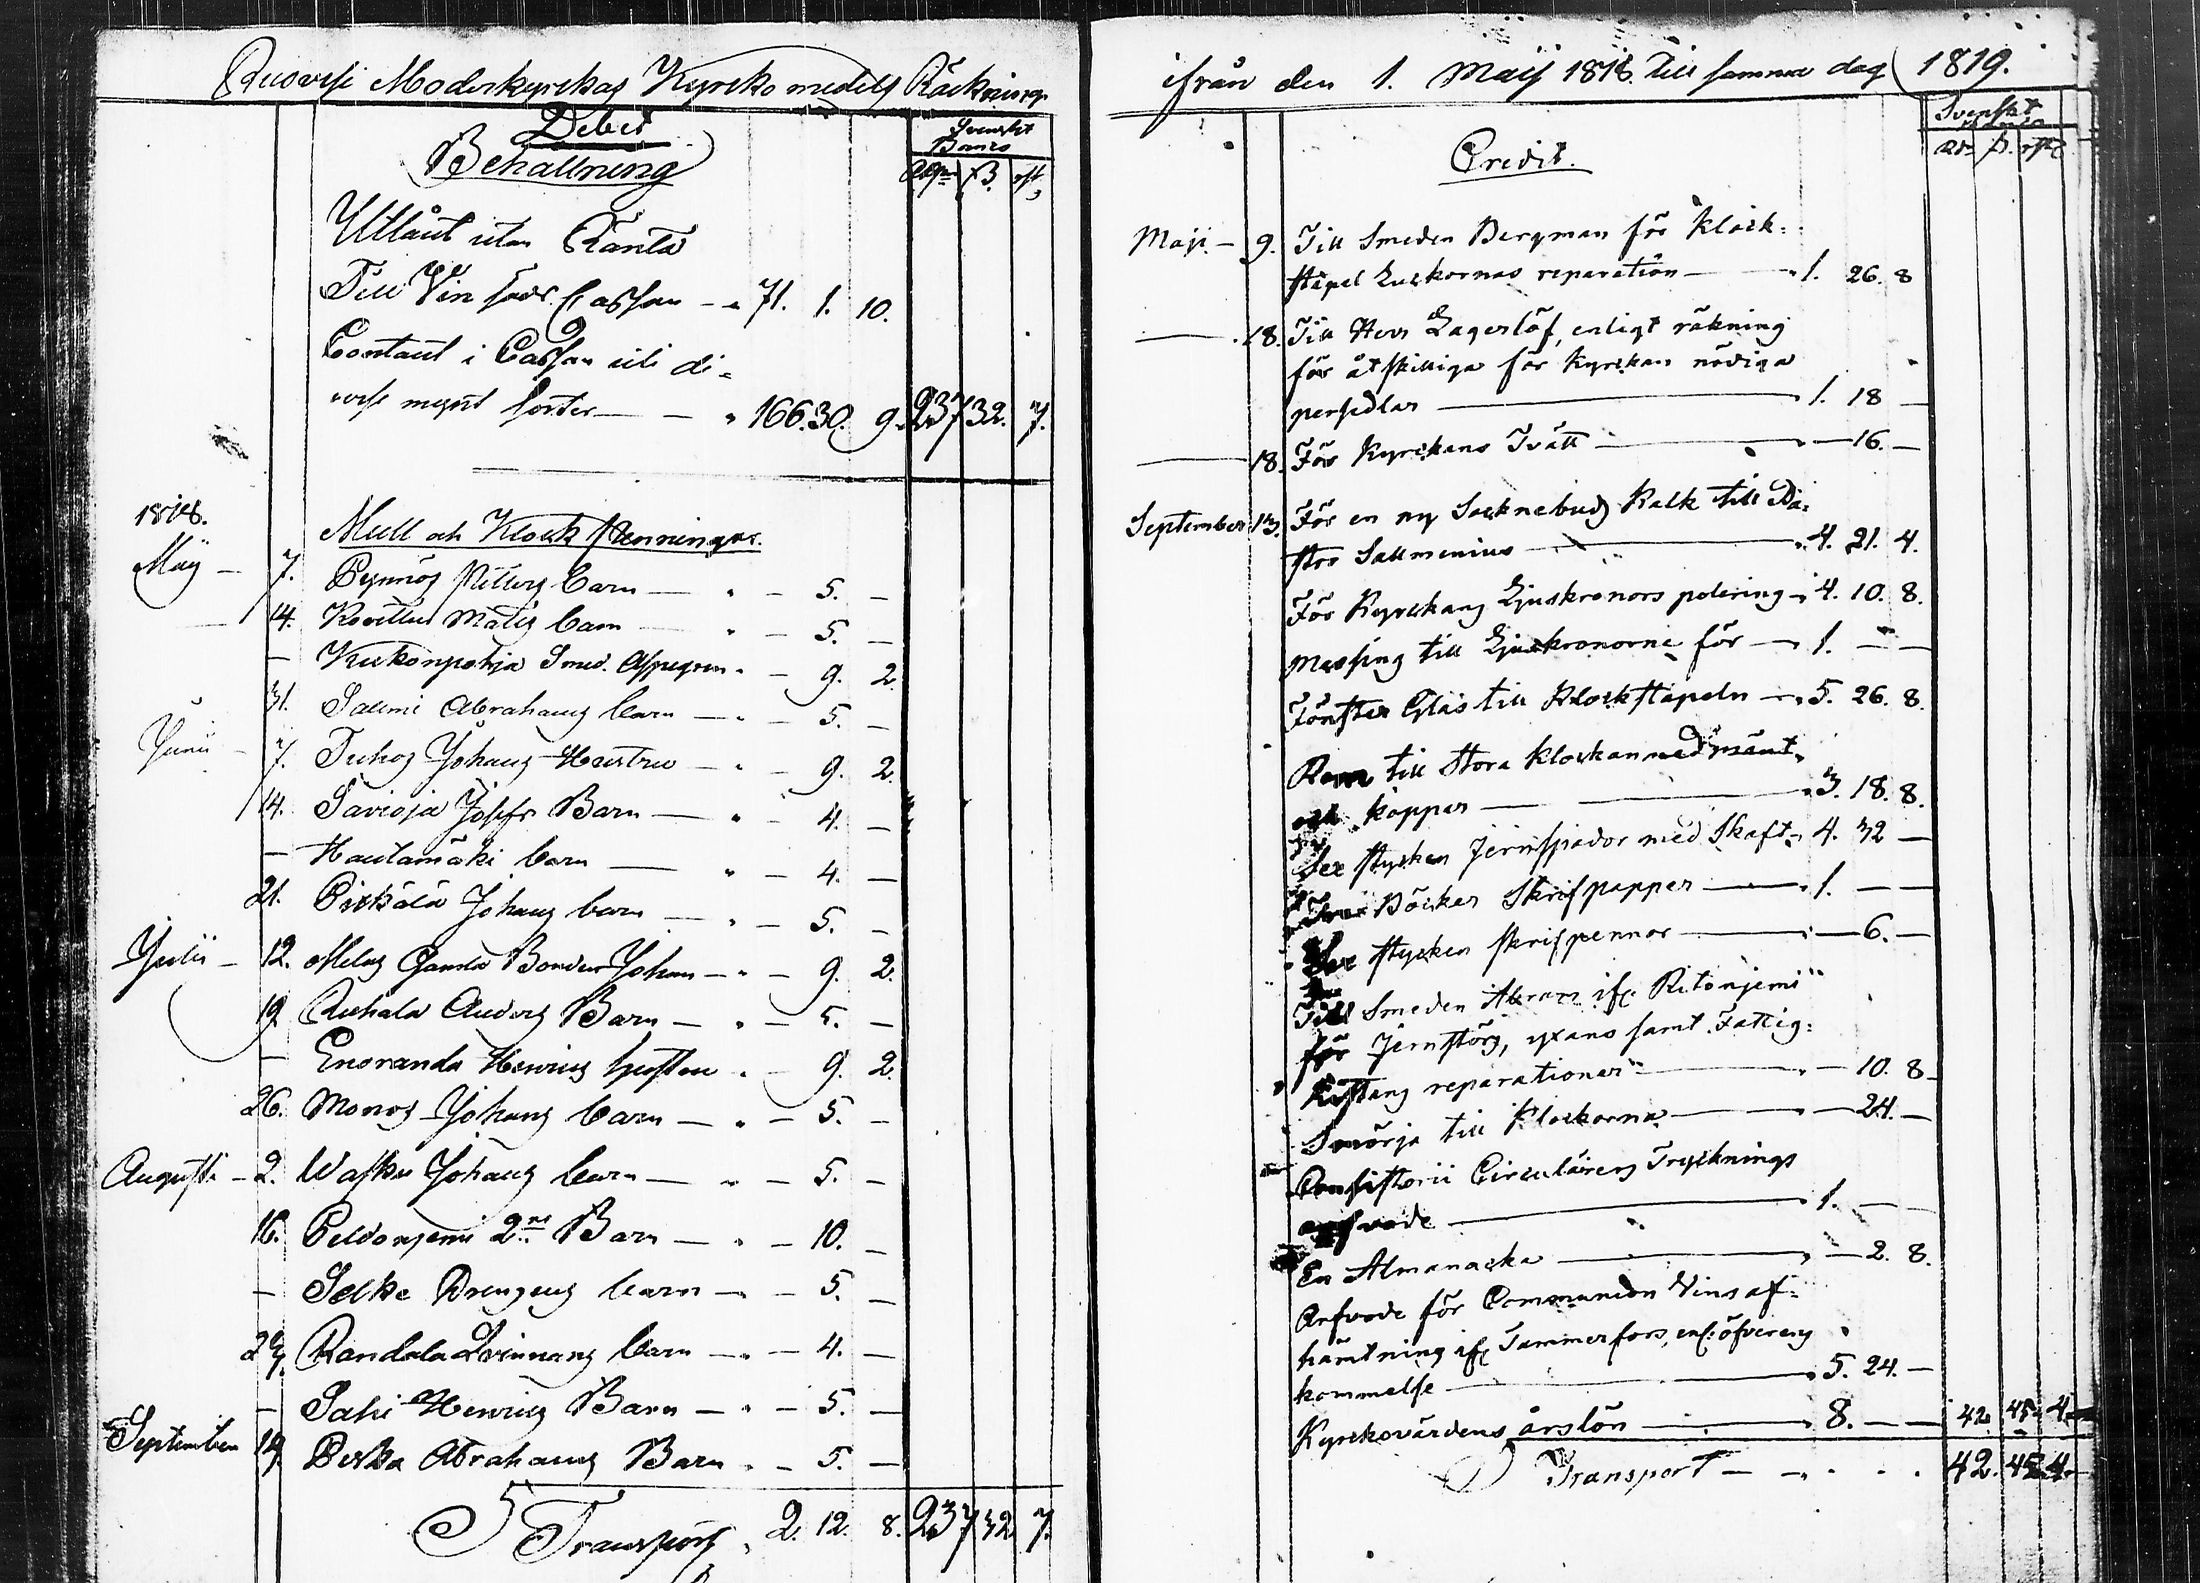 Ruovesi Moderkyrckas Kyrcko medels Räckning
Debet
Behallning
Svenskt
Banco
Rdr ß. rst
Utlånt utan Ränta
Till Vin säds Cassan - " 71. 1. 10.
Contant i Cassan uti di=
verse mynt sorter — — " 166. 30. 9. 237 32. 7.
1818.
Mull och Klock Penningar.
Maij — 7. Pynnös Petters barn — " — 5. —
— 14. Matts barn — " — 5. —
— Kuckonpohja Smed. Aspegren " — 9. 2.
31. Salmi Abrahams barn — " — 5. —
Junii — 7. Tuhos Johans Hustru — " — 9. 2.
14. Savioja Josefs Barn — " — 4. —
— Hautamäki barn — " — 4. —
21. Pirkälä Johans barn — " — 5. —
Julii — 12. Gamla Bonden Johan — " — 9. 2.
19 Ruhala Anders Barn — " — 5. —
— Enoranda Henrics hustru " — 9. 2.
26. Monos Johans barn — " — 5. —
Augusti — 2. Wasku Johans barn — " — 5. —
16. Peldonjemi 2ne Barn — " — 10. —
— Selke Drengens barn — " — 5. —
Randala barn — " — 4. —
— Sahi Henrics Barn — " — 5. —
September Pukka Abrahams Barn " — 5. —
Transport " 2. 12. 8. 237 32 7.
ifrån den 1. Maij 1818. till samma dag 1819.
Svenskt
Banco
Rdr ß. rst
Credit.
Maji — 9. Till Smeden Bergman för Klock=
stapel Luckornas reparation — " 1. 26. 8
— 18. Till Herr Lagerlöf, enligt räkning
för åtskilliga för Kyrckan nödiga
persedlar — 1. 18 —
— 18. För Kyrckans Tvätt — " — 16. —
September 13. För en ny Socknebuds Kalk till Pa=
stor Sallmenius — " 4. 21. 4.
För Kyrckans Ljuskronors polering " 4. 10. 8.
Messing till Ljuskronorne för — " 1. — —
Fönster Glas till Klockstapeln — " 5. 26. 8.
Rem till Stora Klockan med
och koppar — " 3. 18. 8.
Sex stycken Jernspador med Skaft " 4. 32 —
Böcker Skrifpapper — " 1. — —
Sex stycken skrifpennor — " — 6. —
Till Smeden Abram if: Ritonjemi
för Jernstörs, yxans samt Fattig=
Kistans reparationer — " — 10. 8
Smörja till Klockorna — " — 24. —
Consistorii Circulärens Trycknings
arfvode — 1. — —
En Almanacka — " — 2. 8.
Arfvode för Communion Vins af=
hämtning if: Tammerfors, enl: öfverens
kommelse — " 5. 24. —
Kyrckovärdens årslön — 8. — — 42. 45. 4.
Transport — " 42. 45. 4.